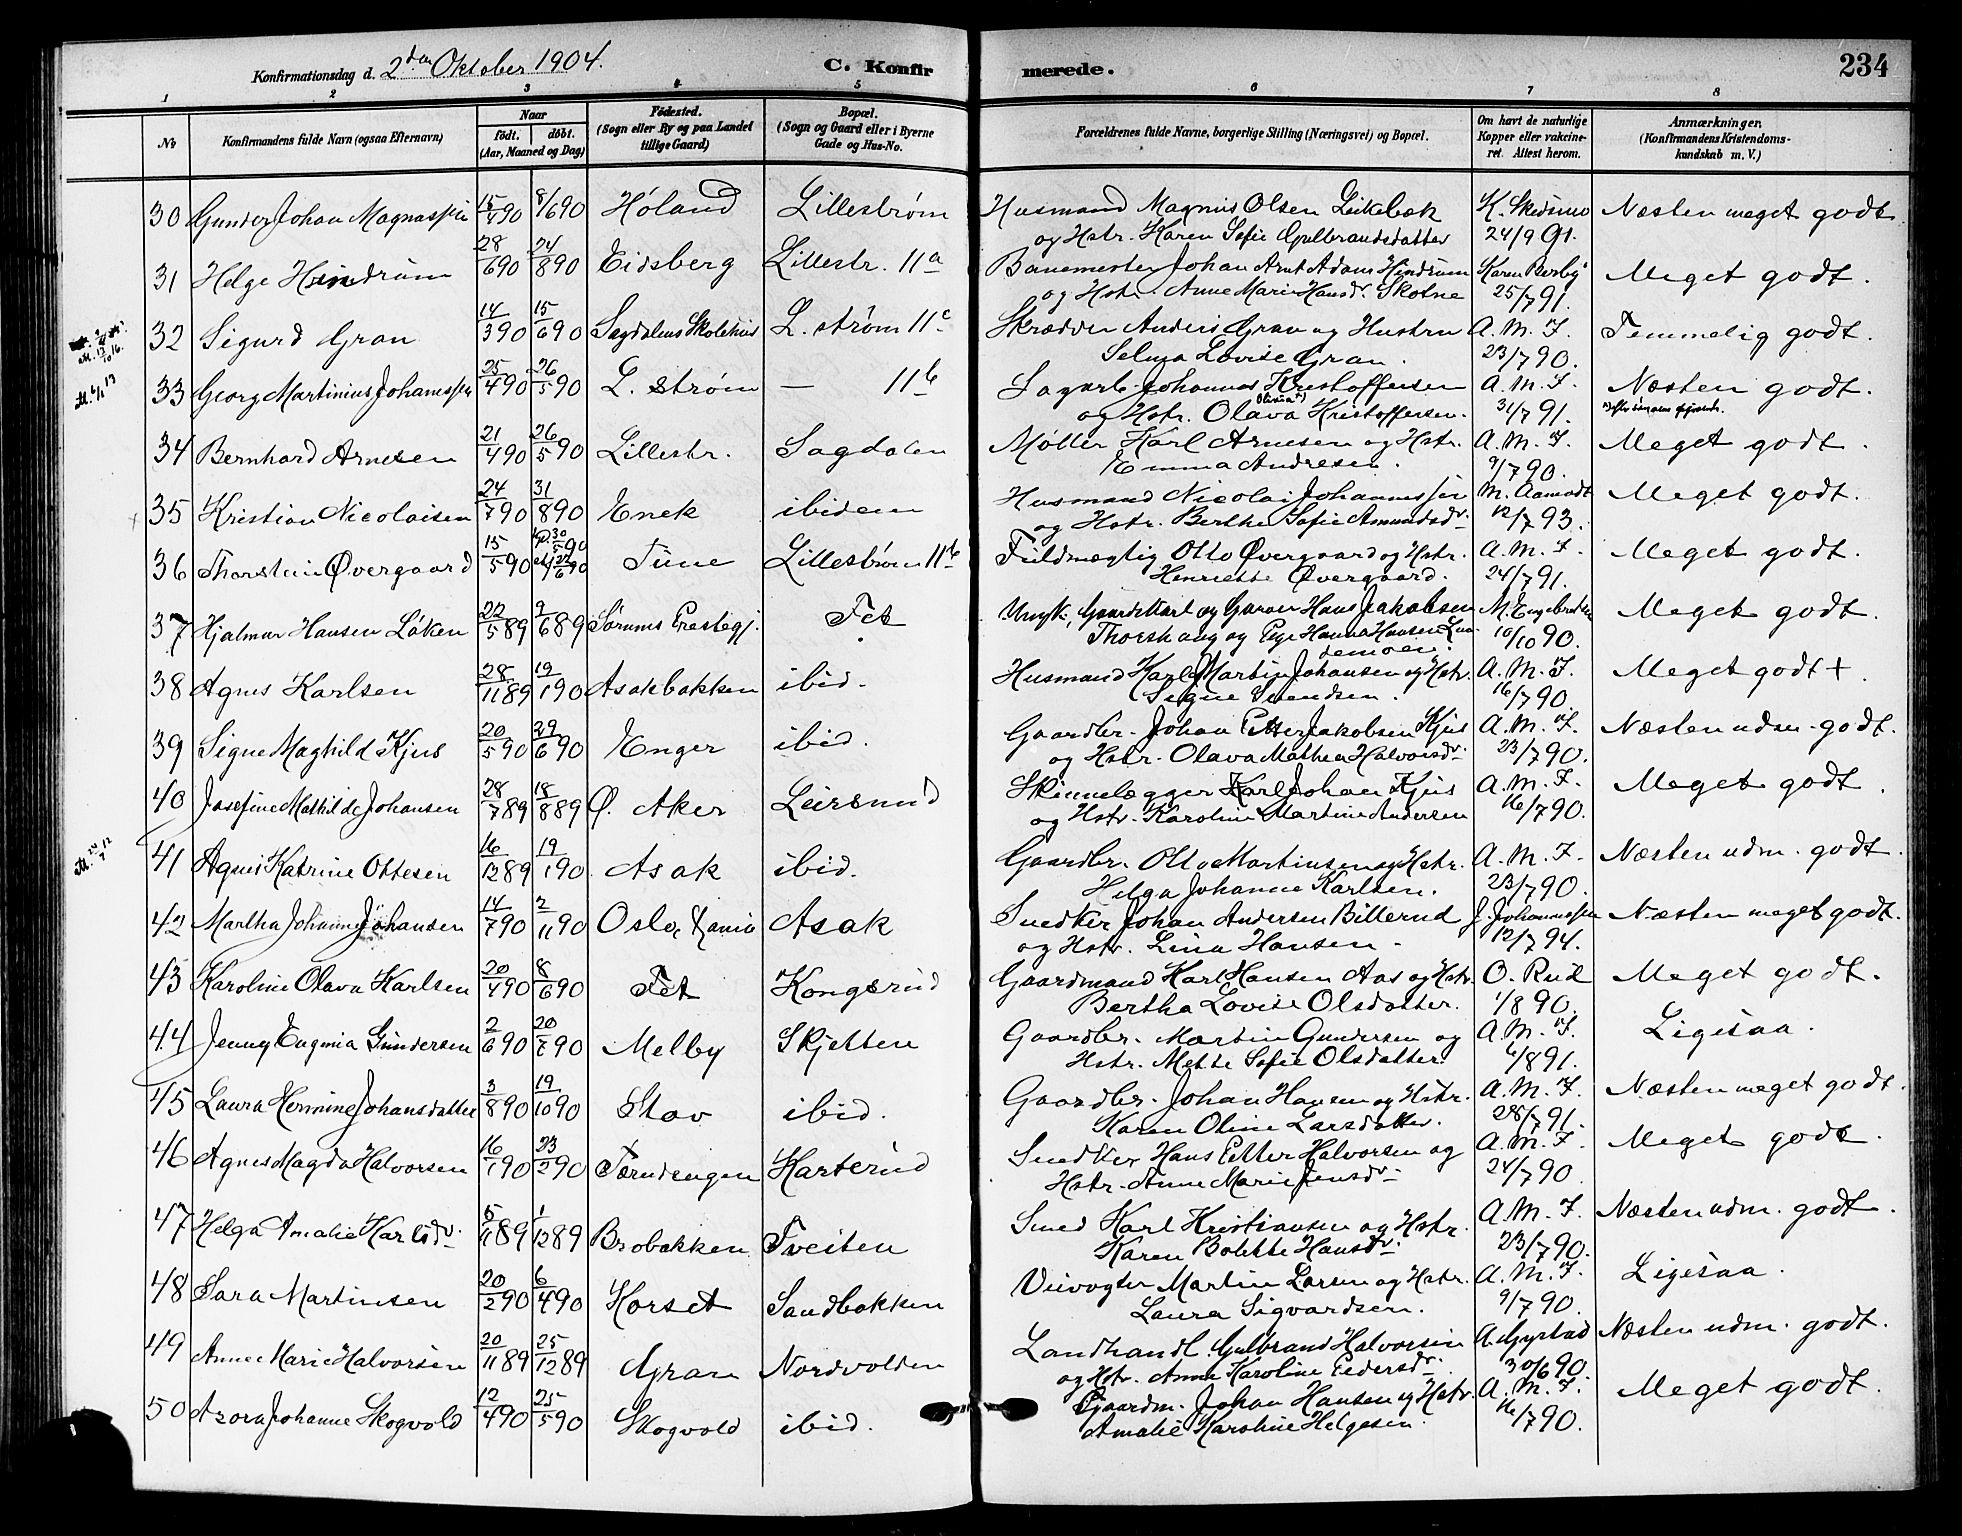 Konfirmationsdag d. 2den Oktober 1904.
C. Konfirmerede.
234
1 2 3 4 5 6 7 8
No
Konfirmandens fulde Navn (ogsaa Efternavn)
Naar
født. døbt.
(Aar, Maaned og Dag)
Fødested.
(Sogn eller By og paa Landet
tillige Gaard)
Bopæl.
(Sogn og Gaard eller i Byerne
Gade og Hus-No.
Forældrenes fulde Navne, borgerlige Stilling (Næringsvei) og Bopæl.
Om havt de naturlige
Kopper eller vakcine-
ret. Attest herom.
Anmærkninger.
(Konfirmandens Kristendoms-
kundskab m. V.)
30 Gunder Johan Magnussen 15/4 90 8/6 90 Høland Lillestrøm Husmand Magnus Olsen Leikebæk K. Skedsmo Næsten meget godt
og Hstr. Karen Sofie Gulbrandsdatter 24/9 91.
31 Helge Hindrum 28/6 90 24/8 90 Eidsberg Lillestr. 11a Banemester Johan Arnt Adam Hindrum Karen Berby Meget godt.
og Hstr. Anne Marie Hansdr. Skotne 25/7 91.
32 Sigurd Gran 14/3 90 15/6 90 Sagdalens Skolehus L. strøm 11c Skrædder Anders Gran og Hustru A. M. F. Temmelig godt.
Selma Lovise Gran. 23/7 90.
33 Georg Martinius Johannssen 25/4 90 26/5 90 L. strøm — 11b Sagarb. Johannes Kristoffersen A. M. F. Næsten godt.
og Hstr. Olava Kristoffersen. 31/7 91.
34 Bernhard Arnesen 21/4 90 26/5 90 Lillestr. Sagdalen Møller Karl Arnesen og Hstr. A. M. F. Meget godt.
Emma Andresen. 9/7 90.
35 Kristian Nicolaisen 24/7 90 31/8 90 Enek ibidem Husmand Nicolai Johannessen M. Aamodt Meget godt.
og Hstr. Berthe Sofie Amundsdr. 12/7 93.
36 Thorstein Øvergaard 15/5 90 Tune Lillestrøm 11b Fuldmægtig Otto Øvergaard og Hstr. A. M. F. Meget godt.
Henriette Øvergaard. 24/7 91.
37 Hjalmar Hansen Løken 22/5 89 9/6 89 Sørums Prestegj. Fet Ungk., Gaardskarl og Garver Hans Jakobsen M. Engebretsen Meget godt.
Thorshaug og Pige Hanna Hansen 10/10 90.
38 Agnes Karlsen 28/11 89 19/1 90 Asakbakken ibid. Husmand Karl Martin Johansen og Hstr. A. M. F. Meget godt +
Signe Svendsen. 16/7 90.
39 Signe Maghild Kjus 20/5 90 29/6 90 Enger ibid. Gaardbr. Johan Petter Jakobsen Kjus A. M. F. Næsten udm. godt.
og Hstr. Olava Mathea Halvorsdr. 23/7 90.
40 Josefine Mathilde Johansen 28/7 89 18/8 89 Ø. Aker Leirsund Skinnelægger Karl Johan Kjus A. M. F. Meget godt.
og Hstr. Karoline Martine Andersen 16/7 90.
41 Agnes Katrine Ottesen 16/12 89 19/1 90 Asak ibid. Gaardbr. Otto Martinsen og Hstr. A. M. F. Næsten udm. godt.
Helga Johanne Karlsen. 23/7 90.
42 Martha Johanne Johansen 14/7 90 2/11 90 Oslo, Kania Asak Snedker Johan Andersen Billerud J. Johannessen Næsten meget godt.
og Hstr. Lina Hansen - 12/7 94.
43 Karoline Olava Karlsen 20/4 90 8/6 90 Fet Kongsrud Gaardmand Karl Hansen Aas og Hstr. O. Rud Meget godt.
Bertha Lovise Olsdatter. 1/8 90.
44 Jenny Eugenia Gundersen 2/6 90 20/7 90 Melby Skjetten Gaardbr. Martin Gundersen og A. M. F. Ligesaa.
Hstr. Mette Sofie Olsdatter. 4/8 91.
45 Laura Hermine Johansdatter 3/8 90 19/10 90 Stav ibid. Gaardbr. Johan Hansen og Hstr. A. M. F. Næsten meget godt.
Karen Oline Larsdatter. 28/7 91.
46 Agnes Magda Halvorsen 16/1 90 23/2 90 Tærudengen Karterud Snedker Hans Petter Halvorsen og A. M. F. Meget godt.
Hstr. Anne Marie Jensdr. 24/7 90
47 Helga Amalie Karlsdr. 5/11 89 1/12 89 Brobakken Tveiten Smed Karl Kristiansen og Hstr. A. M. F. Næsten udm. godt.
Karen Bolette Hansdr. 23/7 90.
48 Sara Martinsen 20/2 90 6/4 90 Korset Sandbakken Veivogter Martin Larsen og Hstr. A. M. F. Ligesaa.
Laura Sigvardsen. 9/7 90.
49 Anne Marie Halvorsen 20/11 89 25/12 89 Gran Nordvolden Landhandl. Gulbrand Halvorsen A. Gystad Næsten udm. godt.
og Hstr. Anne Karoline Pedersdr. 30/6 90.
50 Azora Johanne Skogvold 12/4 90 25/5 90 Skogvold ibid. Gaardm. Johan Hansen og Hstr. A. M. F. Meget godt.
Amalie Karoline Helgesen. 16/7 90.